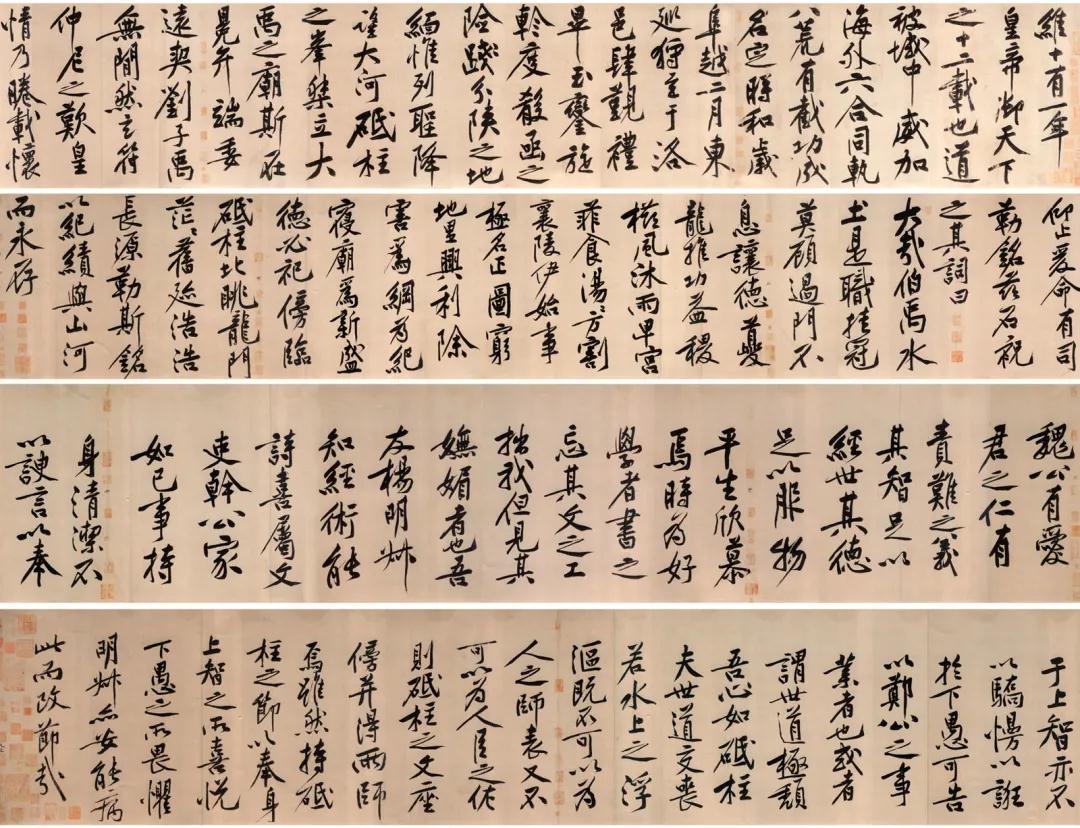 維十有一年
皇帝御天下
之十二載也道
被域中威加
海外六合同軌
八荒有截功成
名定時和歲
阜越二月東
巡狩至于洛
邑肆觀禮
畢玉鑾旋
軫度殽函之
險踐分陝之地
緬惟列聖降
望大河砥柱
之峯桀立大
禹之廟斯在
冕弁端委
遠契劉子禹
無間然之符
仲尼之歎皇
情乃睠載懷
仰止爰命有司
勒銘茲石祝
之其詞曰
大哉伯禹水
土是職挂冠
莫顧過門不
息讓德夔
龍推功益稷
櫛風沐雨卑宮
菲食湯〻方割
襄陵伊始事
極名正圖窮
地里興利除
害爲綱爲紀
寢廟爲新盛
德必祀傍臨
砥柱北眺龍門
茫〻舊迹浩浩
長源勒斯銘
以紀績與山河
而永存
魏公有愛
君之仁有
責難之義
其智足以
經世其德
足以服物
平生欣慕
焉時爲好
學者書之
忘其文之工
拙我但見其
嫵媚者也吾
友楊明叔
知經術能
詩喜屬文
吏幹公家
如己事持
身清潔不
以諛言以奉
于上智亦不
以驕慢以誑
於下愚可告
以鄭公之事
業者也或者
謂世道極頹
吾心如砥柱
夫世道交喪
若水上之浮
漚既不可以爲
人之師表又不
可以爲人臣之佐
則砥柱之文座
傍并得兩師
焉雖然持砥
柱之節以奉身
上智之所喜悅
下愚之所畏懼
明叔亦安能病
此而改節哉